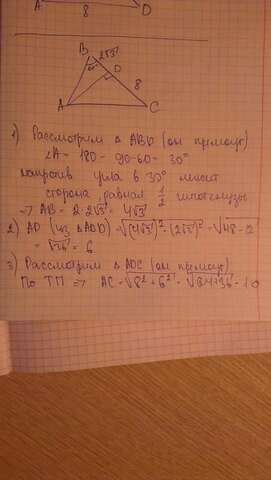 A 8 D
B 2√3
60°
D
8
A C
1) Рассмотрим Δ ABD (он прямоуг)
∠A = 180 - 90 - 60 = 30°
напротив угла в 30° лежит
сторона, равная 1/2 гипотенузы
=> AB = 2·2√3 = 4√3
2) AD (из ΔABD) = √(4√3)² - (2√3)² = √48 - 12
= √36 = 6
3) Рассмотрим Δ ADC (он прямоуг)
По ТП => AC = √8² + 6² = √64+36 = 10